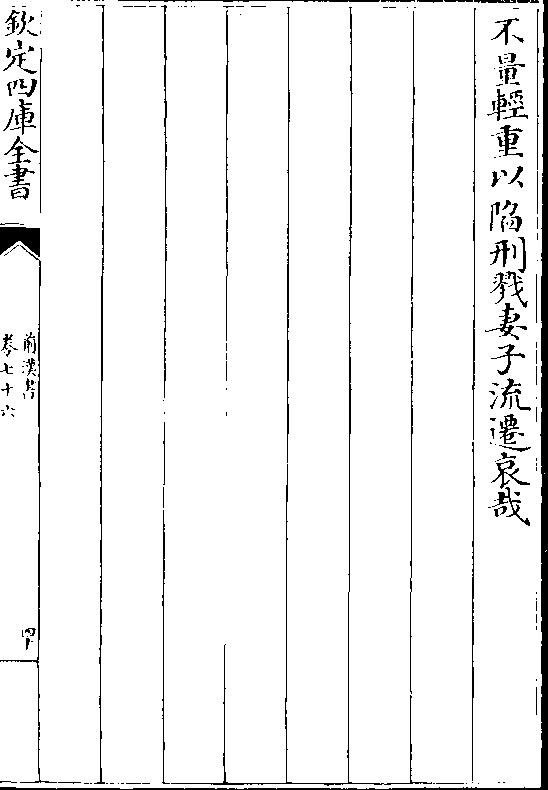 不量輕重以陷刑戮妻子流遷哀哉
欽定四庫全書
前漢書
卷七十六
四十